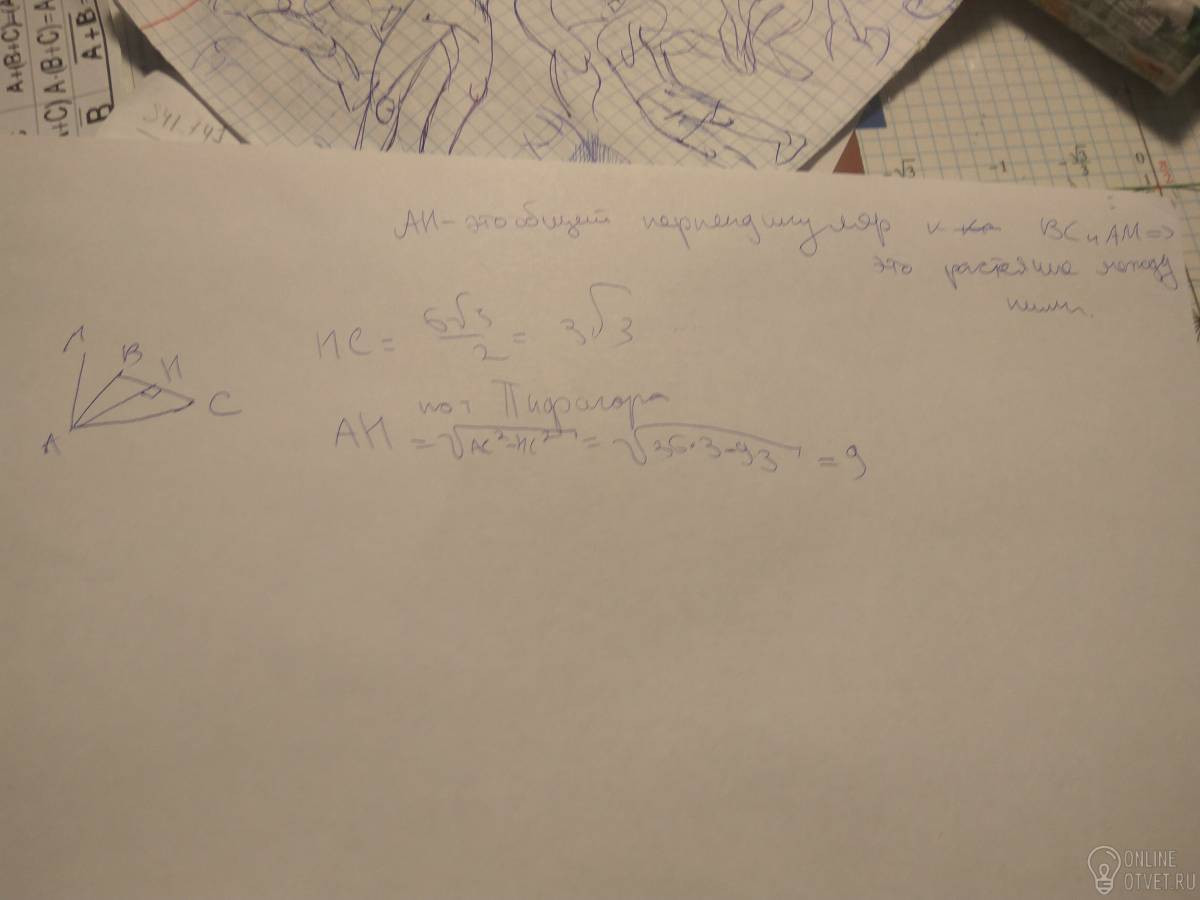 A+(B+C)=(A
+C) A·(B+C)=A
B A+B=
541.143
-√3 -1 -√3/3 0
AH - это общий перпендикуляр к BC и AM =>
это растояние между
ними.
HC = 6√3/2 = 3√3
M
B
H
C
A
по т Пифагора
AH = √AC²-HC² = √36·3-9·3 = 9
ONLINE
OTVET.RU